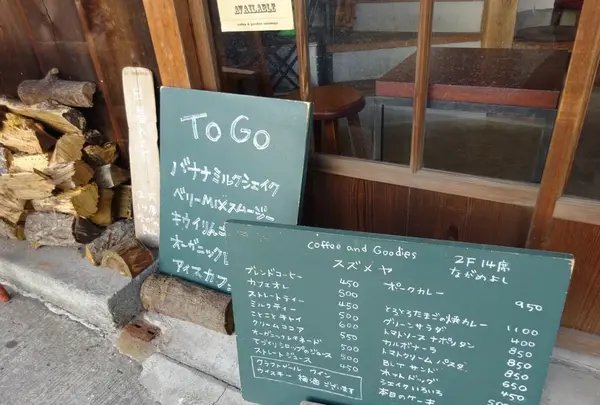 AVAILABLE
To Go
バナナミルクシェイク
ベリーMIXスムージー
キウイりんご
オーガニック
アイスカフェ
coffee and Goodies
スズメヤ
2F 14席
ながめよし
ブレンドコーヒー 450
カフェオレ 500
ストレートティー 450
ミルクティー 500
ことことチャイ 600
クリームココア 550
オーガニックレモネード 500
てづくりシロップのジュース 500
ストレートジュース 450
クラフトビール ワイン
ウイスキー 梅酒ございます
ポークカレー 950
とろとろたまごの焼カレー 1100
グリーンサラダ 400
トマトソースナポリタン 850
カルボナーラ 850
トマトクリームパスタ 850
BLTサンド 850
ホットドッグ 650
シェイクいろいろ 450
本日のケーキ 500